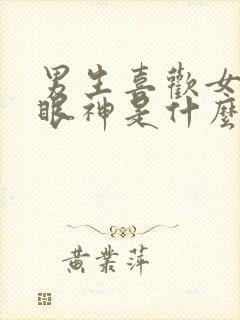 男生喜歡女
眼神是什麼
黃業萍